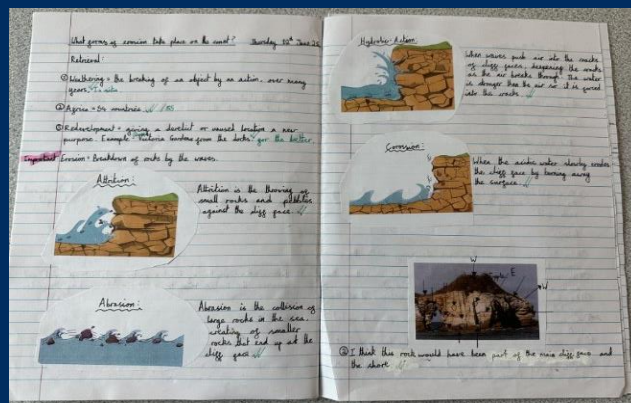 What forms of erosion take place on the coast? Thursday 10th June 25
Retrieval:
① Weathering = the breaking of an object by an action, over many
years.
② Africa = 54 countries / 55
③ Redevelopment = giving a derelict or unused location a new
purpose. Example = Victoria Gardens from the docks for the better.
Important Erosion = Breakdown of rocks by the waves.
Attrition:
Attrition is the throwing of
small rocks and pebbles
against the cliff face.
Abrasion:
Abrasion is the collision of
large rocks in the sea,
creating of smaller
rocks that end up at the
cliff face
Hydraulic Action:
When waves push air into the cracks
of cliff faces, deepening the cracks
as the air breaks through. The water
is stronger than the air so it is forced
into the cracks.
Corrosion:
When the acidic water slowly erodes
the cliff face by burning away
the surface.
W
E
W
② I think this rock would have been part of the main cliff face and
the shore